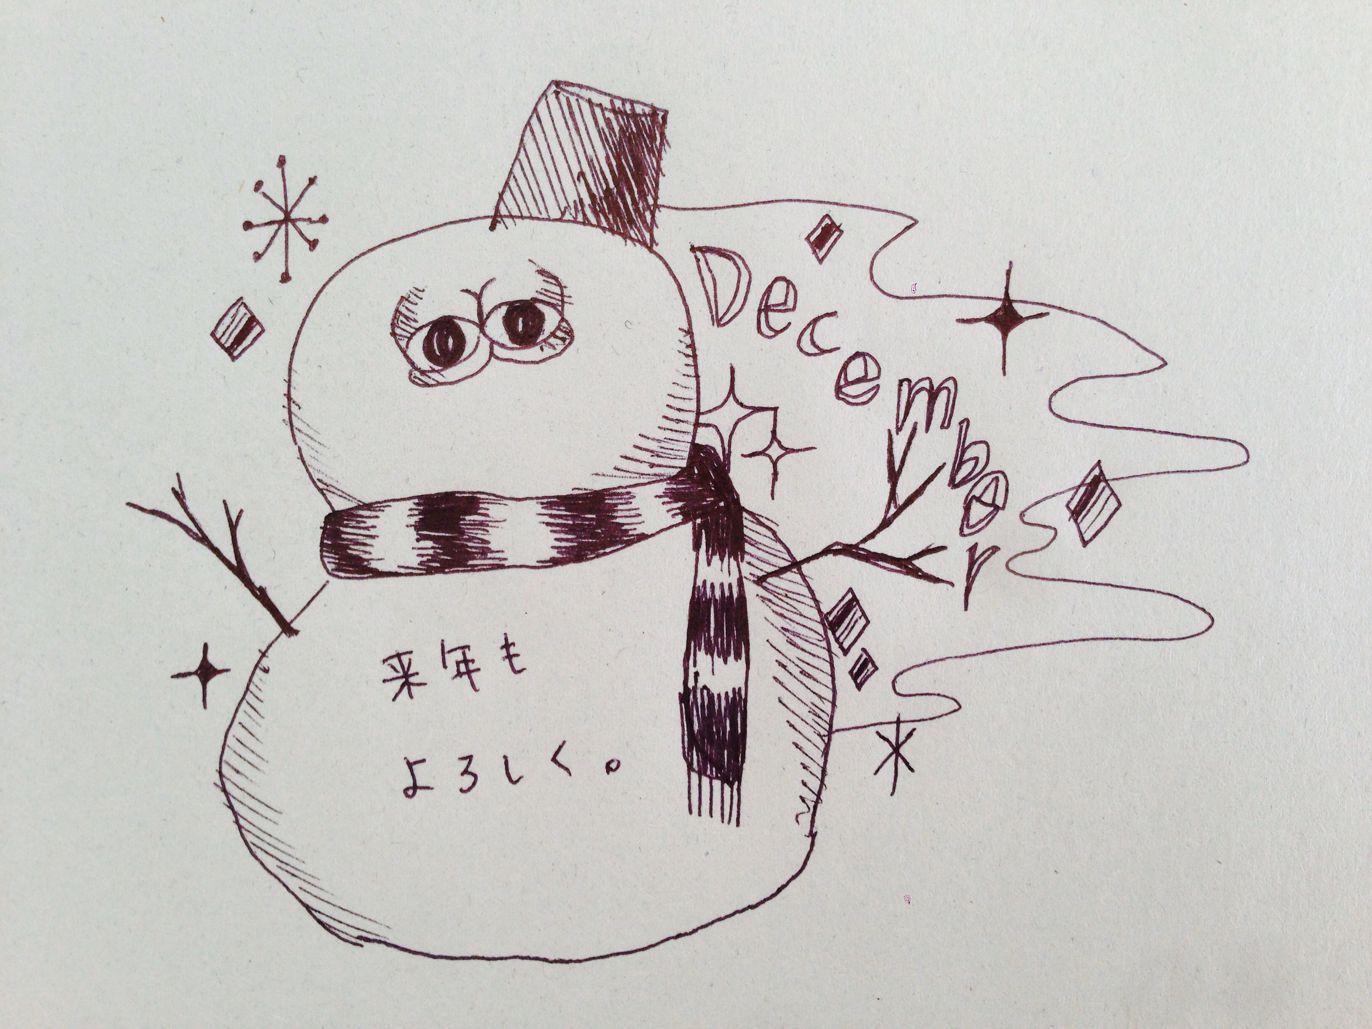 December
来年も
よろしく。